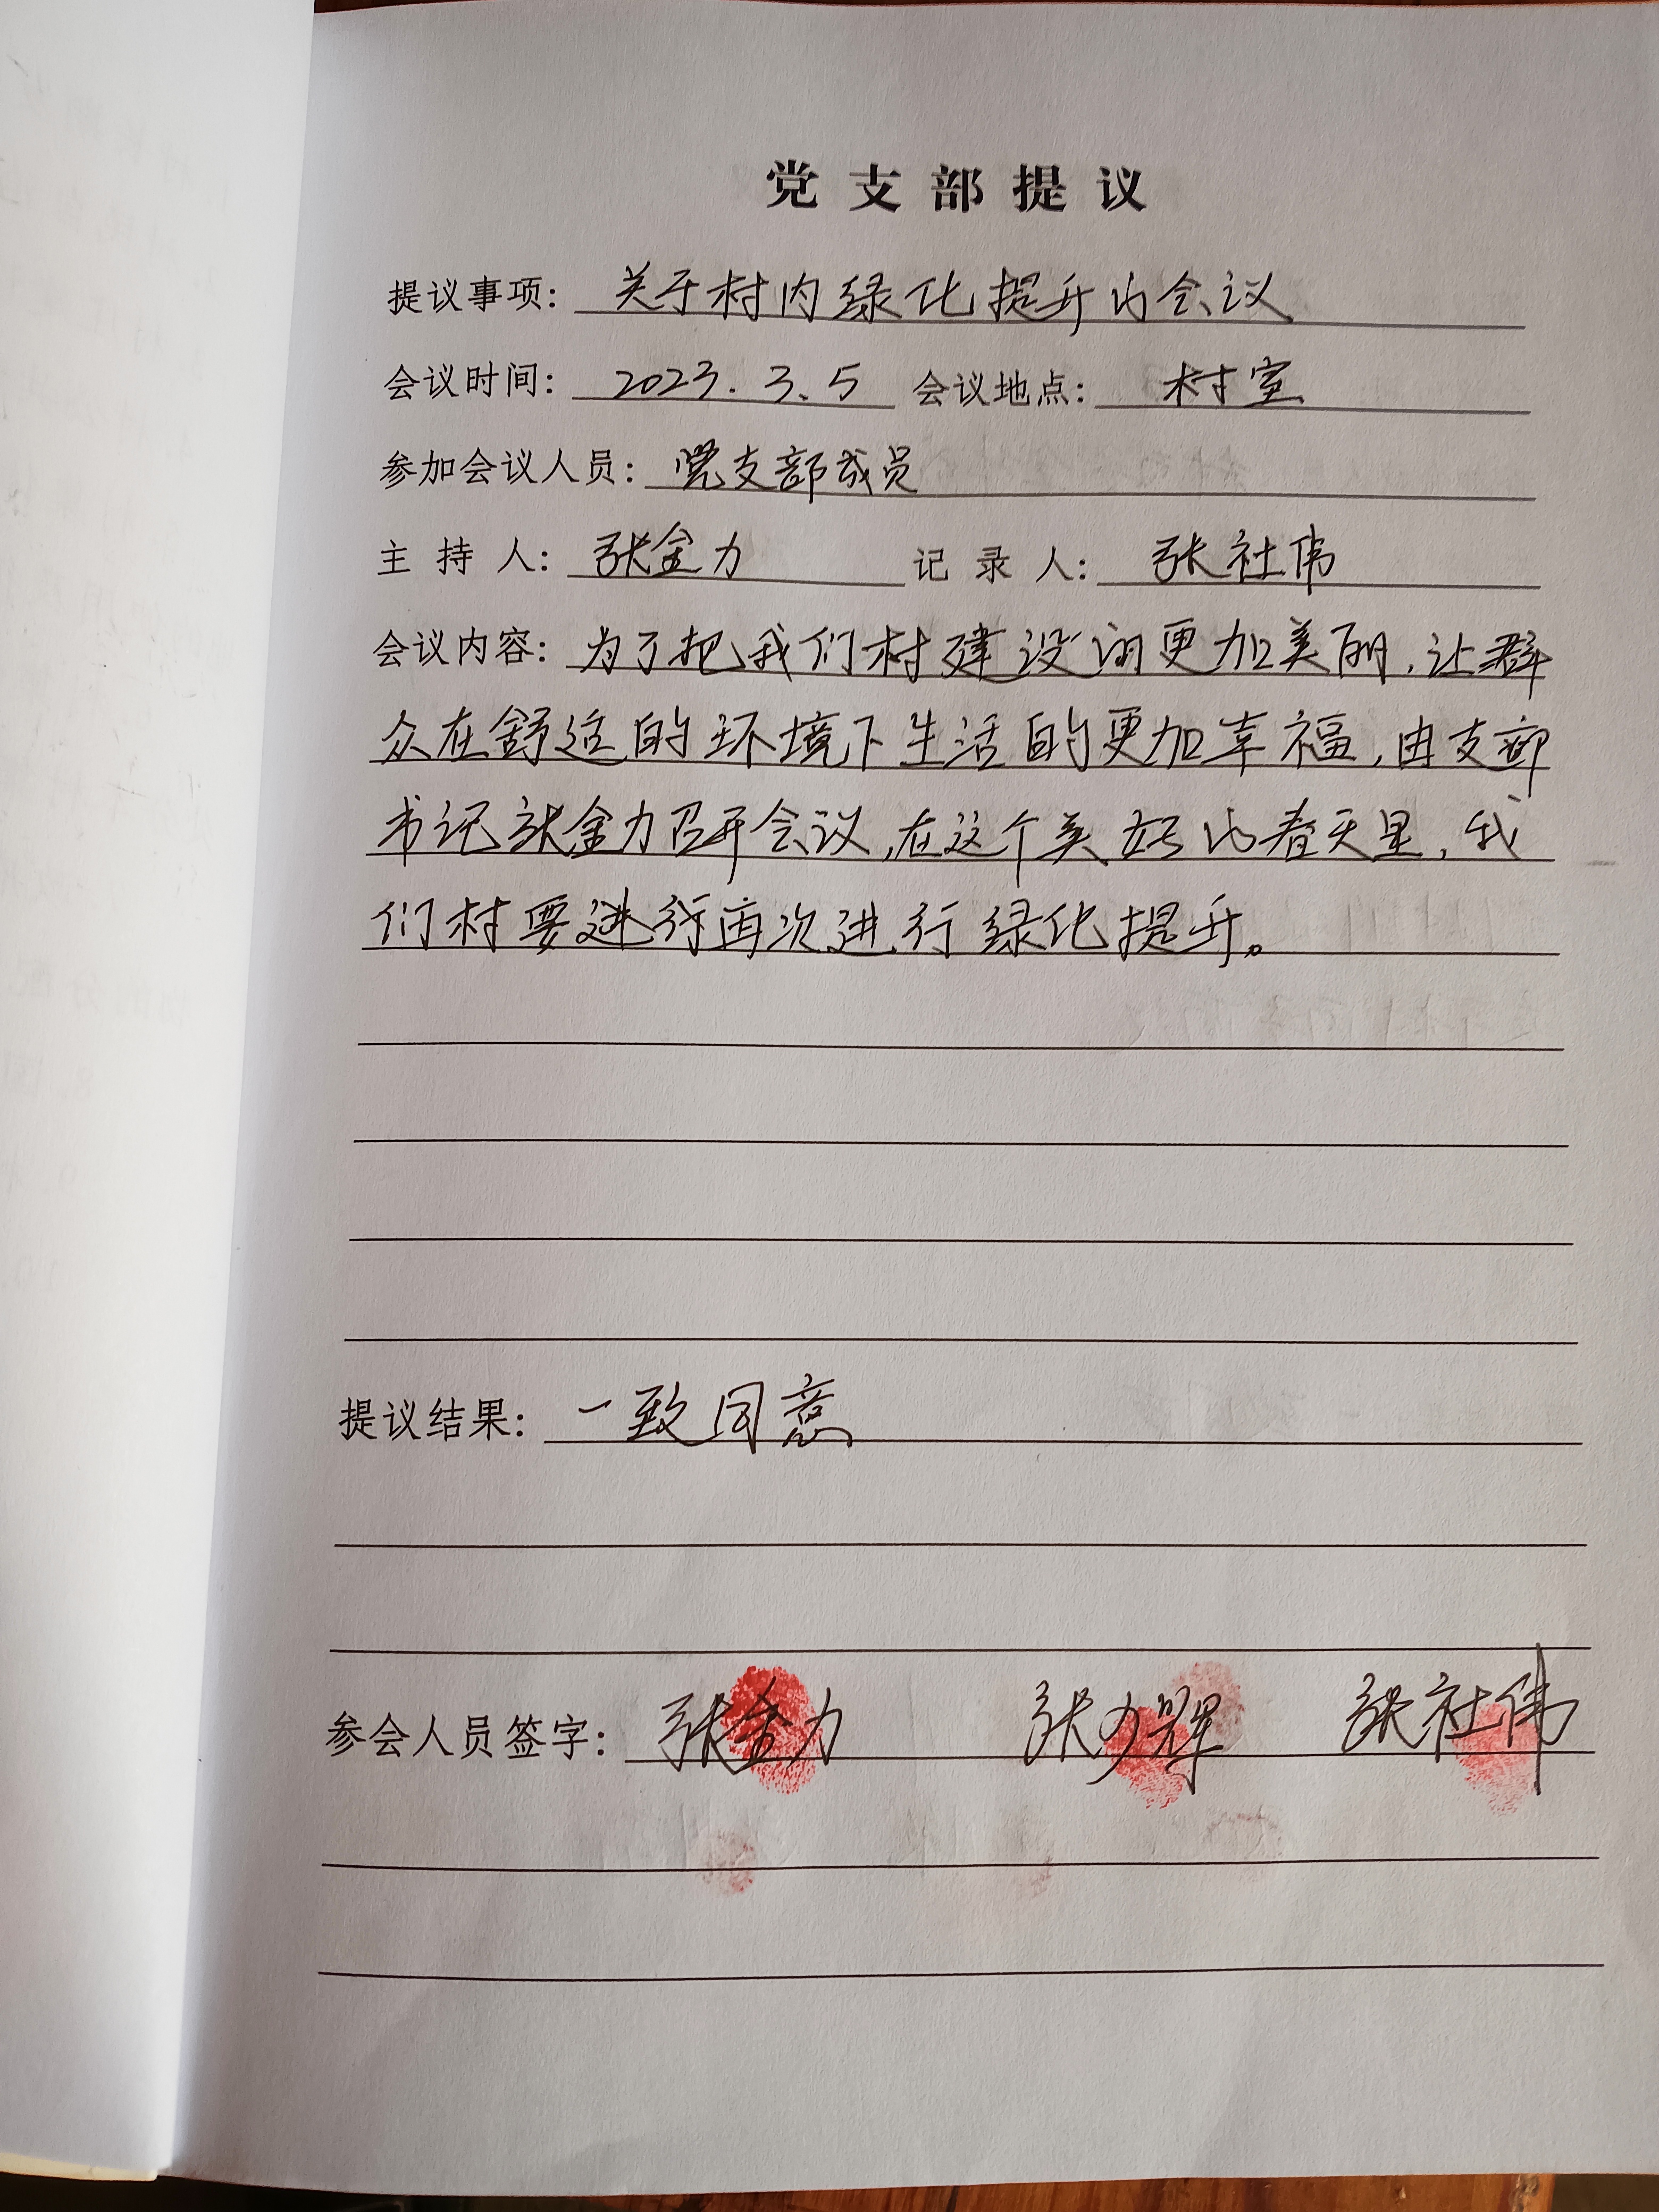 党支部提议
提议事项：关于村内绿化提升的会议
会议时间：2023.3.5 会议地点：村室
参加会议人员：党支部成员
主持人：张金力 记录人：张社伟
会议内容：为了把我们村建设的更加美丽，让群
众在舒适的环境下生活的更加幸福，由支部
书记张金力召开会议，在这个美好的春天里，我
们村要进行再次进行绿化提升。
提议结果：一致同意
参会人员签字：张金力 张少辉 张社伟